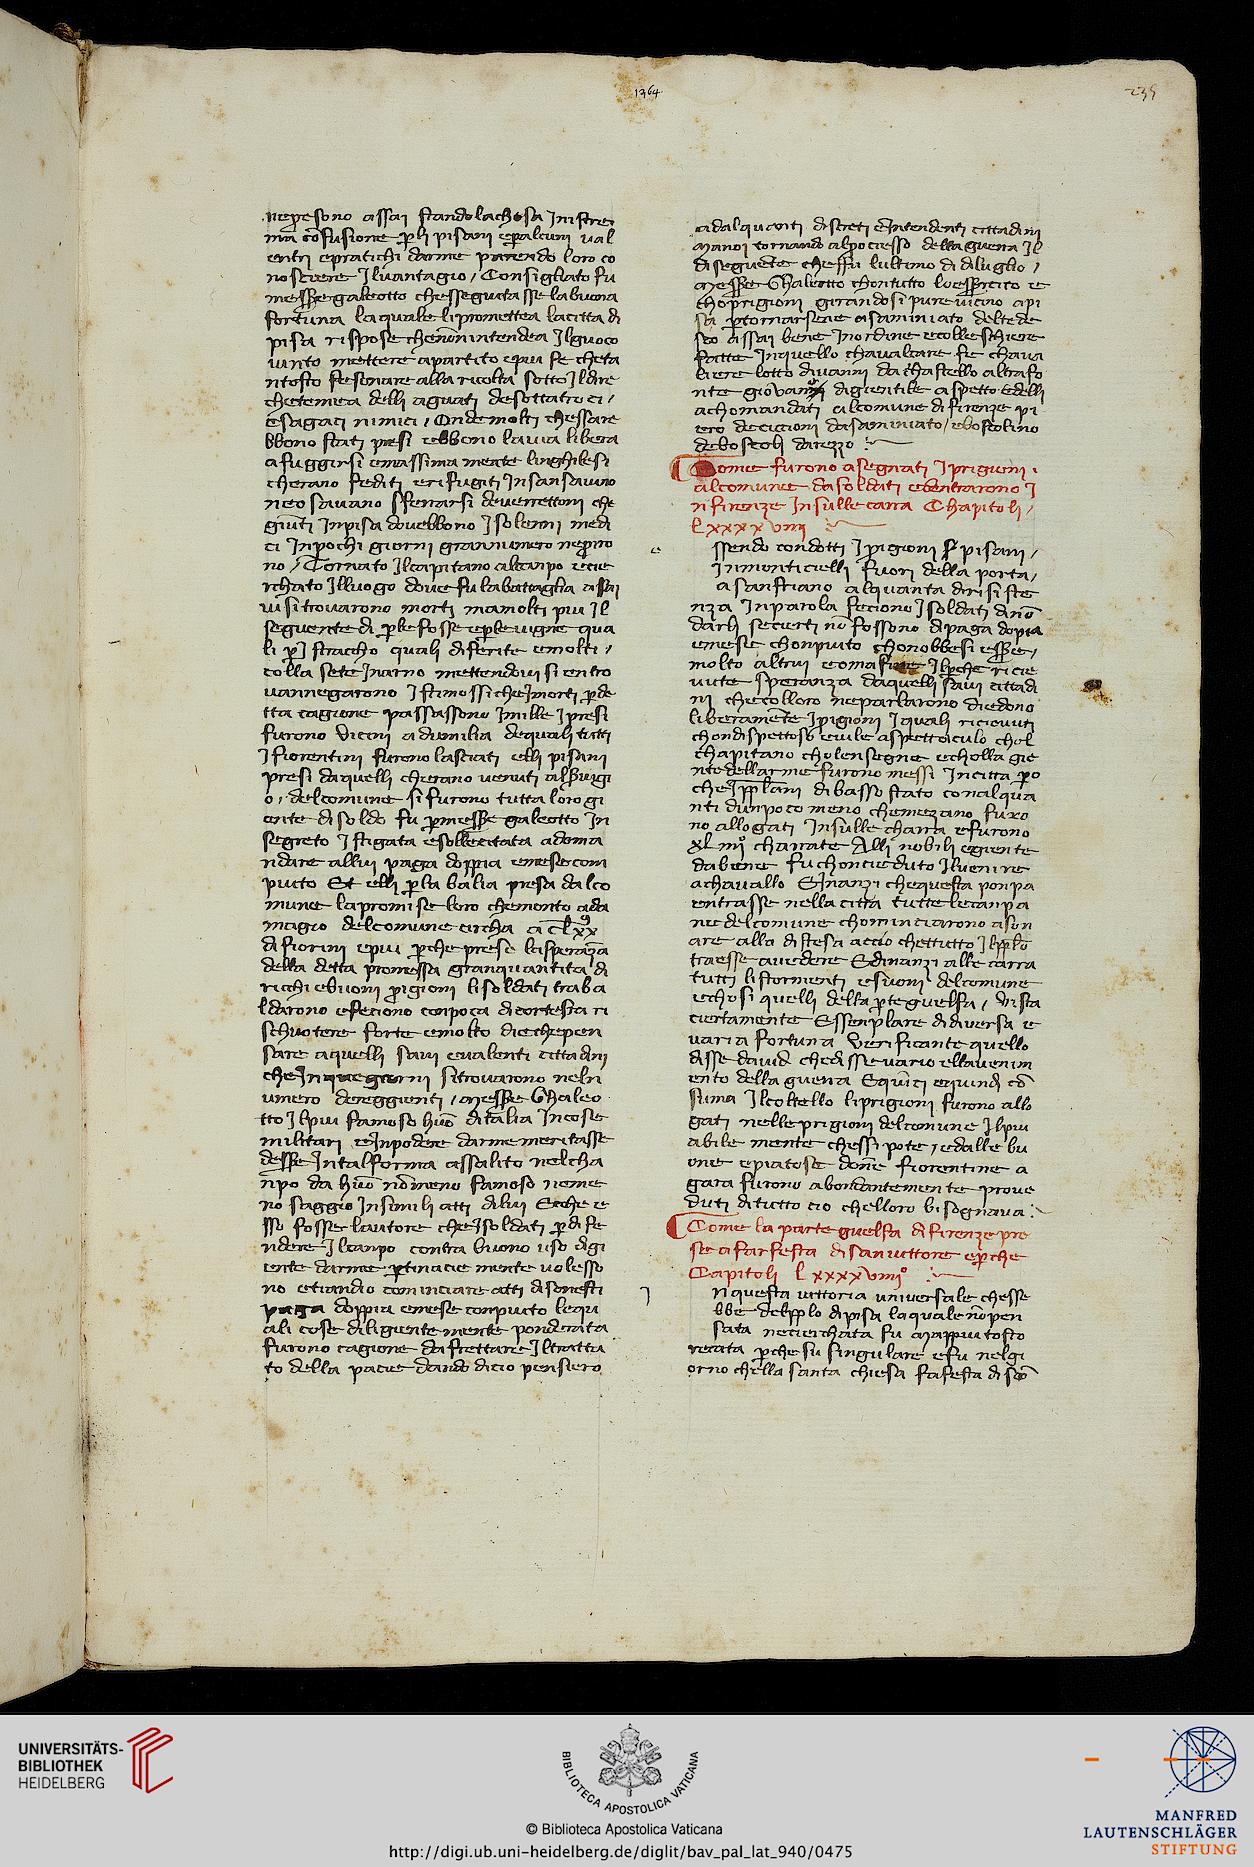 1364
235
nepresono assai stando la chosa in istre
ma cofusione p li pisani e p alcuni val
enti e pratichi darme parendo loro co
nosciere il vantagio / Consigliato fu
messer galeotto chesseguitasse la buona
fortuna la quale li promettea la citta di
pisa rispose che non intendea il guoco
vinto mettere a partito e qui fe cheta
ntosto fe sonare alla ricolta sotto il dire
che temea delli aguati desottratoci /
e sagaci nimici / Onde molti chessare
bbono stati presi ebbono la via libera
a fuggirsi e massima mente linghilesi
cherano fediti e rifugiti in san savino
ne osavano sferrarsi deverrettoni che
giuti in pisa dovebbono i solenni medi
ci in pochi giorni gran numero ne piro
no / Tornato il capitano al canpo e cie
rchato il luogo dove fu la battaglia assai
vi si trovarono morti ma molti piu il
seguente di p le fosse e p le vigne qua
li p istracho quali di ferite e molti /
colla sete in arno mettendovisi entro
vannegarono istimossi che i morti p de
tta cagione passassono i mille i presi
furono vicini a dumilia de quali tutti
i fiorentini furono lasciati elli pisani
presi da quelli cherano venuti al svigi
o / del comune si furono tutta loro gi
ente di soldo fu p messer galeotto in
segreto istigata e sollecitata a doma
ndare allui paga doppia e mese com
piuto Et elli p la balia presa dal co
mune la promise loro che monto a da
magio del comune circha a clxx
di fiorini e piu p che prese la speraza
della detta promessa gran quantita di
ricchi e buoni prigioni li soldati traba
ldarono e feciono con poca di cortesia ri
schuotere forte e molto die che pen
sare a quelli savi e valenti cittadini
che in que giorni si trovarono nel n
umero de reggienti / messer Ghaleo
tto il piu famoso huo ditalia in cose
militari e in podere darme meritasse
desse in tal forma assalito nel cha
npo da huo no meno famoso ne me
no saggio in simili atti di lui Et che e
sso fosse lautore che i soldati p dife
ndere il canpo contra buono uso di gi
ente darme ptinacie mente volesso
no etiandio cominciare atti disonesti
paga doppia e mese compiuto le qu
ali cose diligiente mente ponderata
furono cagione da frettare il tratta
to della pacie dando di cio pensiero
ad alquanti discreti e intendenti cittadini
Ma noi tornando al prociesso della guerra il
di seguente cheffu lultimo di di luglio /
Messer Ghaleotto chon tutto loesercito e
cho prigioni girandosi pure vicino a pi
sa p tornarsene a saminiato del tede
sco assai bene in ordine e colle schiere
fatte in quello chavalcare fe chava
liere lotto di vanni da chastello altrafo
nte giovani di gientile aspetto edelli
achomandati al comune di firenze pi
ero de ciccioni da saminiato / e bostolino
de bostoli darezzo
Come furono asegnati i prigioni
al comune da soldati e entrarono i
n firenze in sulle carra Chapitoli /
LXXXXVIII
e
ssendo condotti i prigioni pisani /
in monticielli fuori della porta /
a san friano alquanta di risiste
nza in parola feciono i soldati di no
darli se cierti no fossono di paga dopia
e mese chonpiuto chonobbesi essere /
molto altrui e
vute speranza da quelli savi cittadi
ni che colloro ne parlarono diedono
liberamente i prigioni i quali ricievuti
chon dispettoso e vile aspettaculo chol
chapitano cholensegne e cholla gie
nte dellarme furono messi in citta p o
che i popolani di basso stato con alqua
nti dun poco meno che mezzano furo
no allogati in sulle charra e furono
xl iiii charrate Alli nobili e giente
da bene fu choncieduto il venire
a chavallo E inanzi che questa ponpa
entrasse nella citta tutte le canpa
ne del comune chominciarono a son
are alla distesa accio che tutto il popolo
traesse a vedere E dinanzi alle carra
tutti li stormenti e suoni del comune
e chosi quelli della parte guelfa / Vista
ciertamente essenplare di diversa e
varia fortuna Verificante quello
disse david che disse vario ellavenim
ento della guerra E quinci e quindi co
suma il coltello li prigioni furono allo
gati nelle prigioni del comune il piu
abile mente chessi pote / e dalle bu
one e piatose done fiorentine a
gara furono abondantemente prove
duti di tutto cio chelloro bisognava
Come la parte guelfa di firenze pre
se a far festa di san vittore e p che
Capitoli LXXXXVIIII
I
n questa vittoria universale chesse
bbe del popolo di pisa la quale no pen
sata ne cierchata fu ma piu tosto
recata p che fu singulare e fu nel gi
orno chella santa chiesa fa festa di sco
UNIVERSITÄTS-
BIBLIOTHEK
HEIDELBERG
BIBLIOTECA APOSTOLICA VATICANA
© Biblioteca Apostolica Vaticana
http://digi.ub.uni-heidelberg.de/diglit/bav_pal_lat_940/0475
MANFRED
LAUTENSCHLÄGER
STIFTUNG